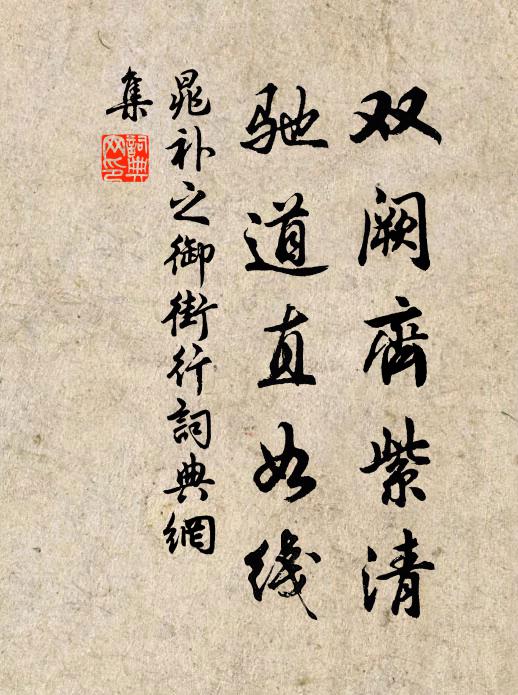 双阙齊紫清
驰道直如线
晁补之御街行詞典網
集
詞典
网印